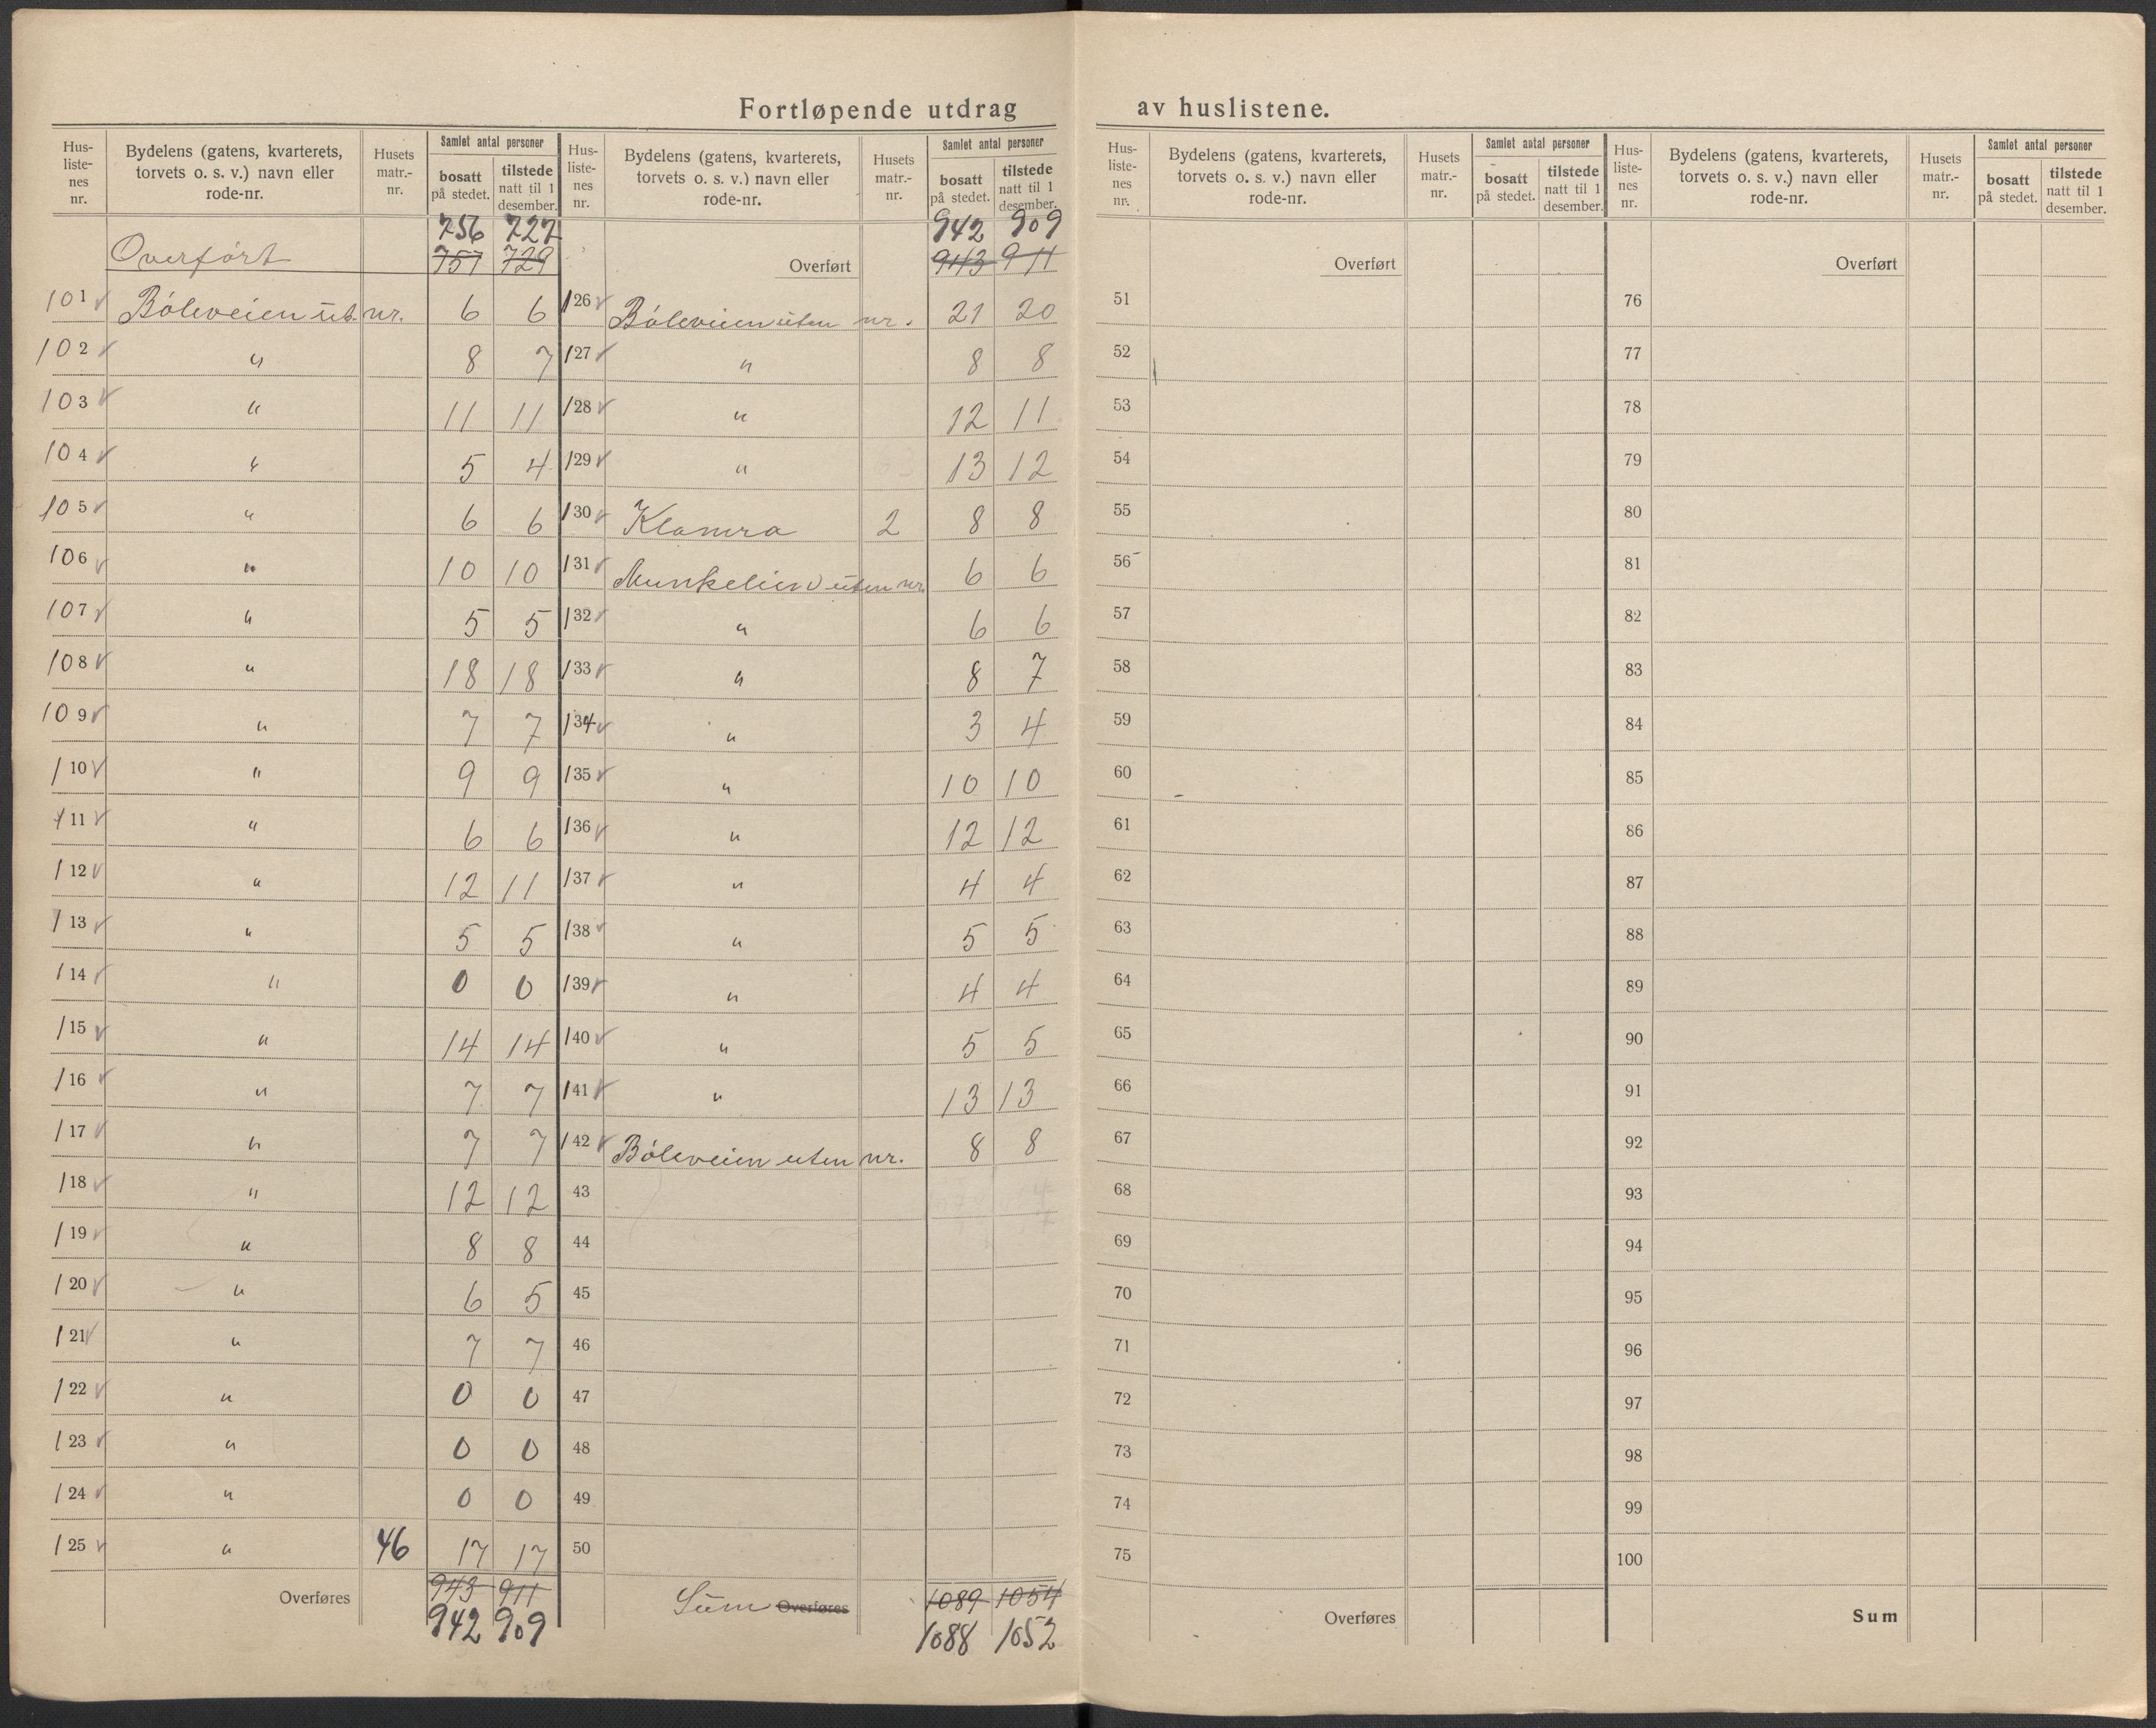 Fortløpende utdrag av huslistene.
Hus-liste-nes nr. Bydelens (gatens, kvarterets, torvets o. s. v.) navn eller rode-nr. Husets matr.-nr. Samlet antal personer bosatt på stedet. tilstede natt til 1 desember.
756 727
Overført 757 729
101 Bøleveien ut. nr. 6 6
102 " 8 7
103 " 11 11
104 " 5 4
105 " 6 6
106 " 10 10
107 " 5 5
108 " 18 18
109 " 7 7
110 " 9 9
111 " 6 6
112 " 12 11
113 " 5 5
114 " 0 0
115 " 14 14
116 " 7 7
117 " 7 7
118 " 12 12
119 " 8 8
120 " 6 5
121 " 7 7
122 " 0 0
123 " 0 0
124 " 0 0
125 " 46 17 17
Overføres 943 911
942 909
Hus-liste-nes nr. Bydelens (gatens, kvarterets, torvets o. s. v.) navn eller rode-nr. Husets matr.-nr. Samlet antal personer bosatt på stedet. tilstede natt til 1 desember.
942 909
Overført 943 911
126 Bøleveien uten nr. 21 20
127 " 8 8
128 " 12 11
129 " 13 12
130 Klomra 2 8 8
131 Munkelien uten nr. 6 6
132 " 6 6
133 " 8 7
134 " 3 4
135 " 10 10
136 " 12 12
137 " 4 4
138 " 5 5
139 " 4 4
140 " 5 5
141 " 13 13
142 Bøleveien uten nr. 8 8
43
44
45
46
47
48
49
50
Sum Overføres 1089 1054
1088 1052
Hus-liste-nes nr. Bydelens (gatens, kvarterets, torvets o. s. v.) navn eller rode-nr. Husets matr.-nr. Samlet antal personer bosatt på stedet. tilstede natt til 1 desember.
Overført
51
52
53
54
55
56
57
58
59
60
61
62
63
64
65
66
67
68
69
70
71
72
73
74
75
Overføres
Hus-liste-nes nr. Bydelens (gatens, kvarterets, torvets o. s. v.) navn eller rode-nr. Husets matr.-nr. Samlet antal personer bosatt på stedet. tilstede natt til 1 desember.
Overført
76
77
78
79
80
81
82
83
84
85
86
87
88
89
90
91
92
93
94
95
96
97
98
99
100
Sum